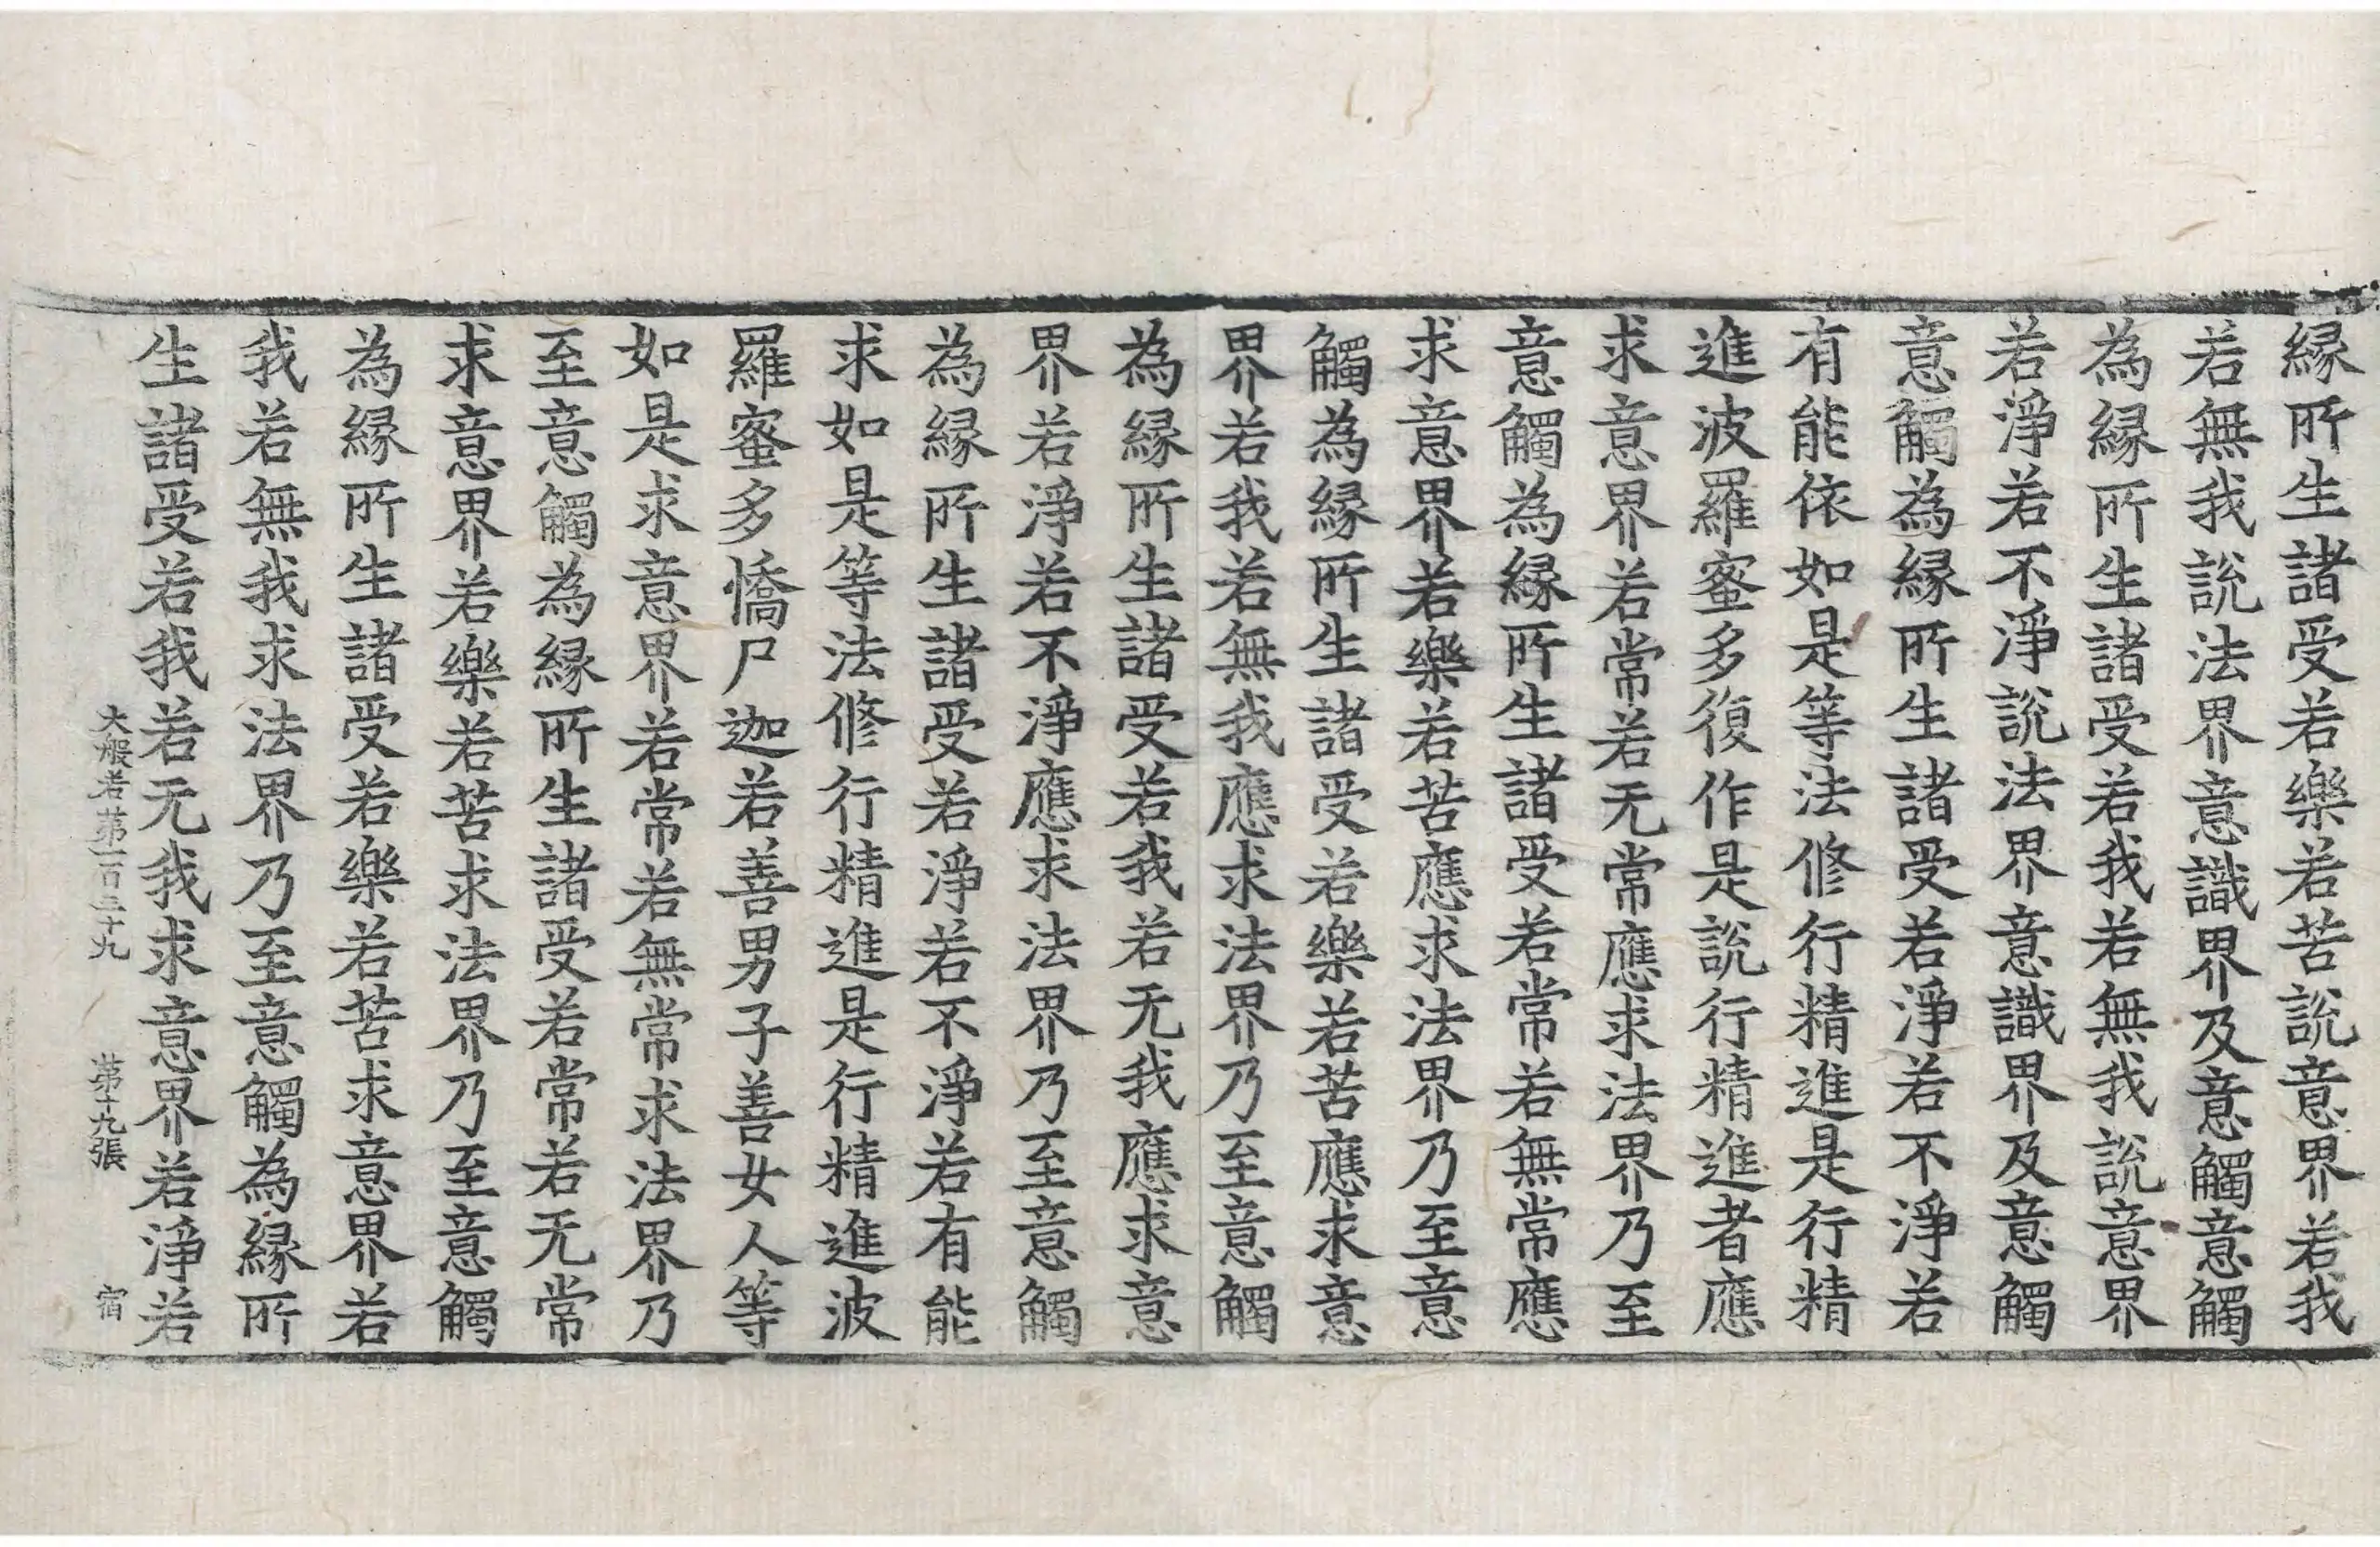 縁所生諸受若樂若苦說意界若我
若無我說法界意識界及意觸意觸
為縁所生諸受若我若無我說意界
若淨若不淨說法界意識界及意觸
意觸為縁所生諸受若淨若不淨若
有能依如是等法修行精進是行精
進波羅蜜多復作是說行精進者應
求意界若常若无常應求法界乃至
意觸為縁所生諸受若常若無常應
求意界若樂若苦應求法界乃至意
觸為縁所生諸受若樂若苦應求意
界若我若無我應求法界乃至意觸
為縁所生諸受若我若无我應求意
界若淨若不淨應求法界乃至意觸
為縁所生諸受若淨若不淨若有能
求如是等法修行精進是行精進波
羅蜜多憍尸迦若善男子善女人等
如是求意界若常若無常求法界乃
至意觸為縁所生諸受若常若无常
求意界若樂若苦求法界乃至意觸
為縁所生諸受若樂若苦求意界若
我若無我求法界乃至意觸為縁所
生諸受若我若无我求意界若淨若
大般若第一百三十九 第十九張 宿